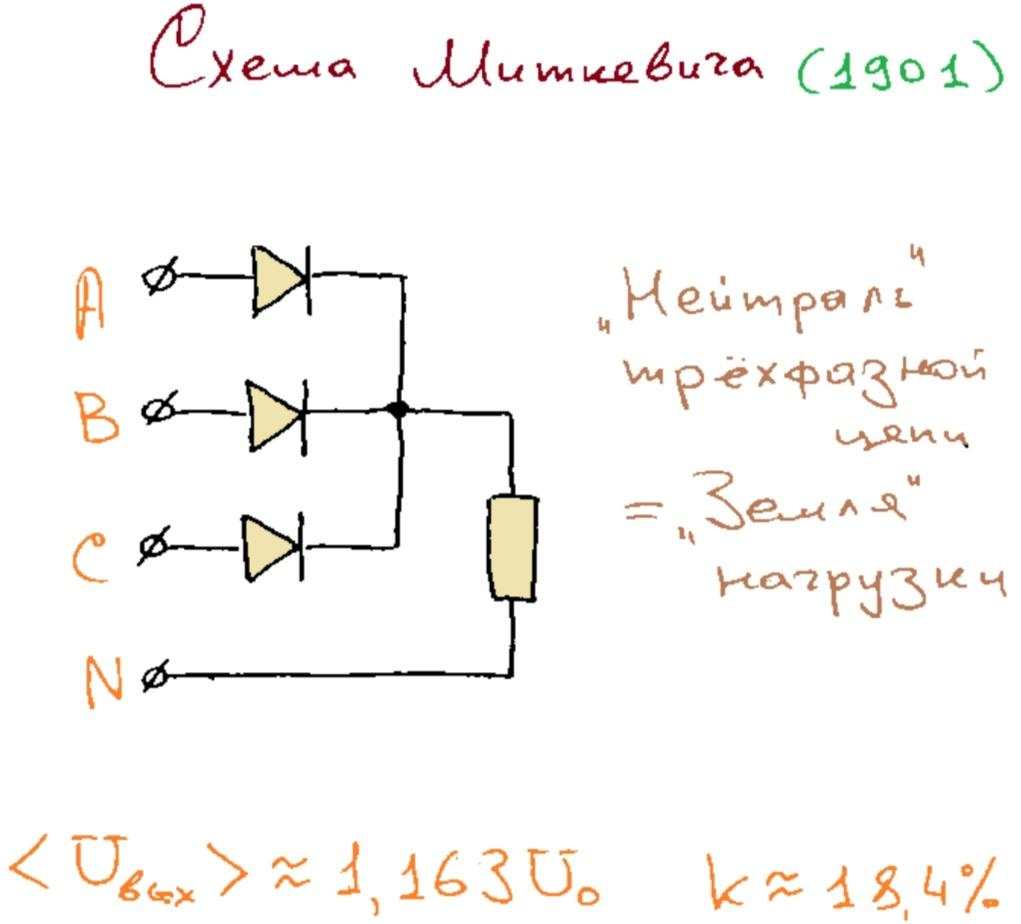 Схема Миткевича (1901)
A
B
C
N
„Нейтраль“
трёхфазной
цепи
= „Земля“
нагрузки
<Uвых> ≈ 1,163U₀ k ≈ 18,4%